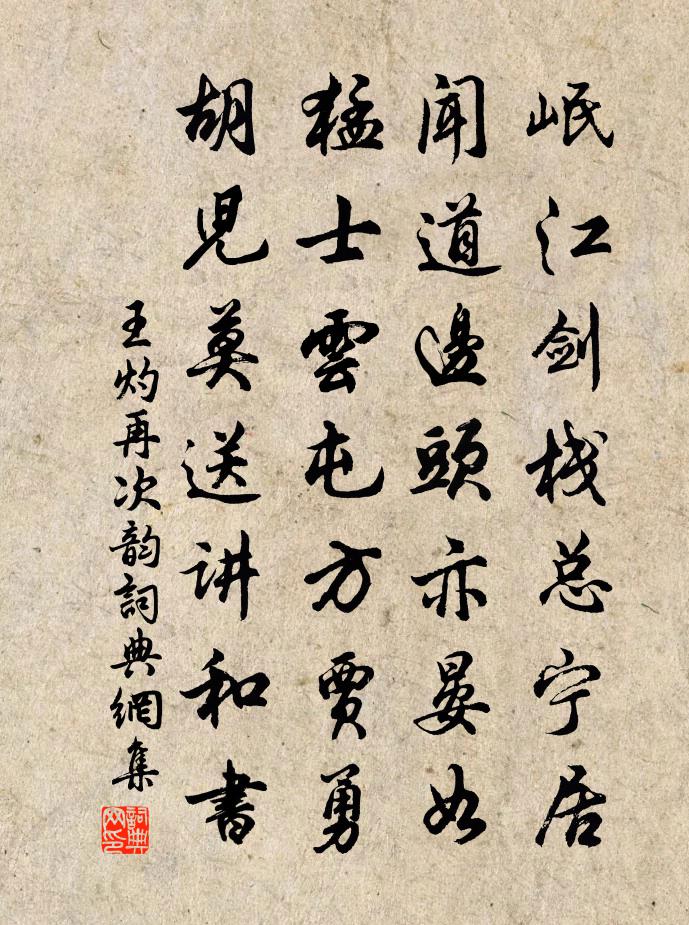 岷江剑栈总宁居
闻道邊頭亦晏如
猛士雲屯方賈勇
胡児莫送讲和書
王灼再次韵詞典網集
詞典网印